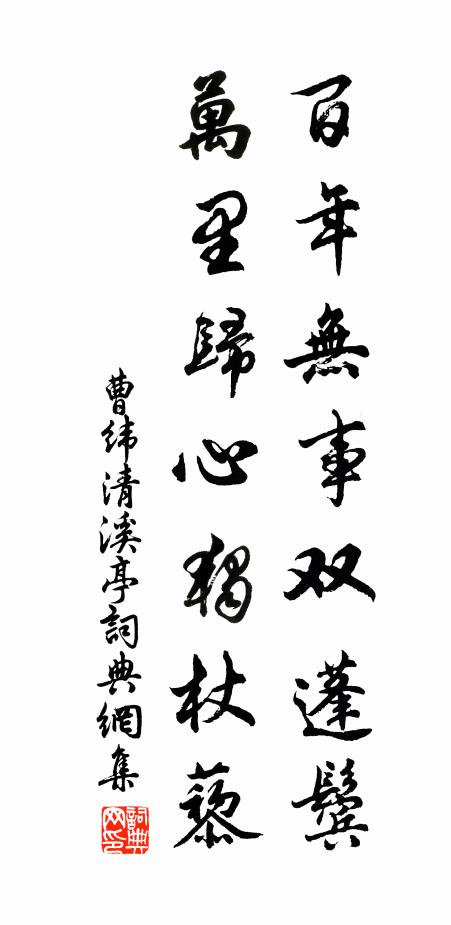 百年無事双蓬鬢
萬里歸心獨杖藜
曹緯清溪亭詞典網集
詞典网印